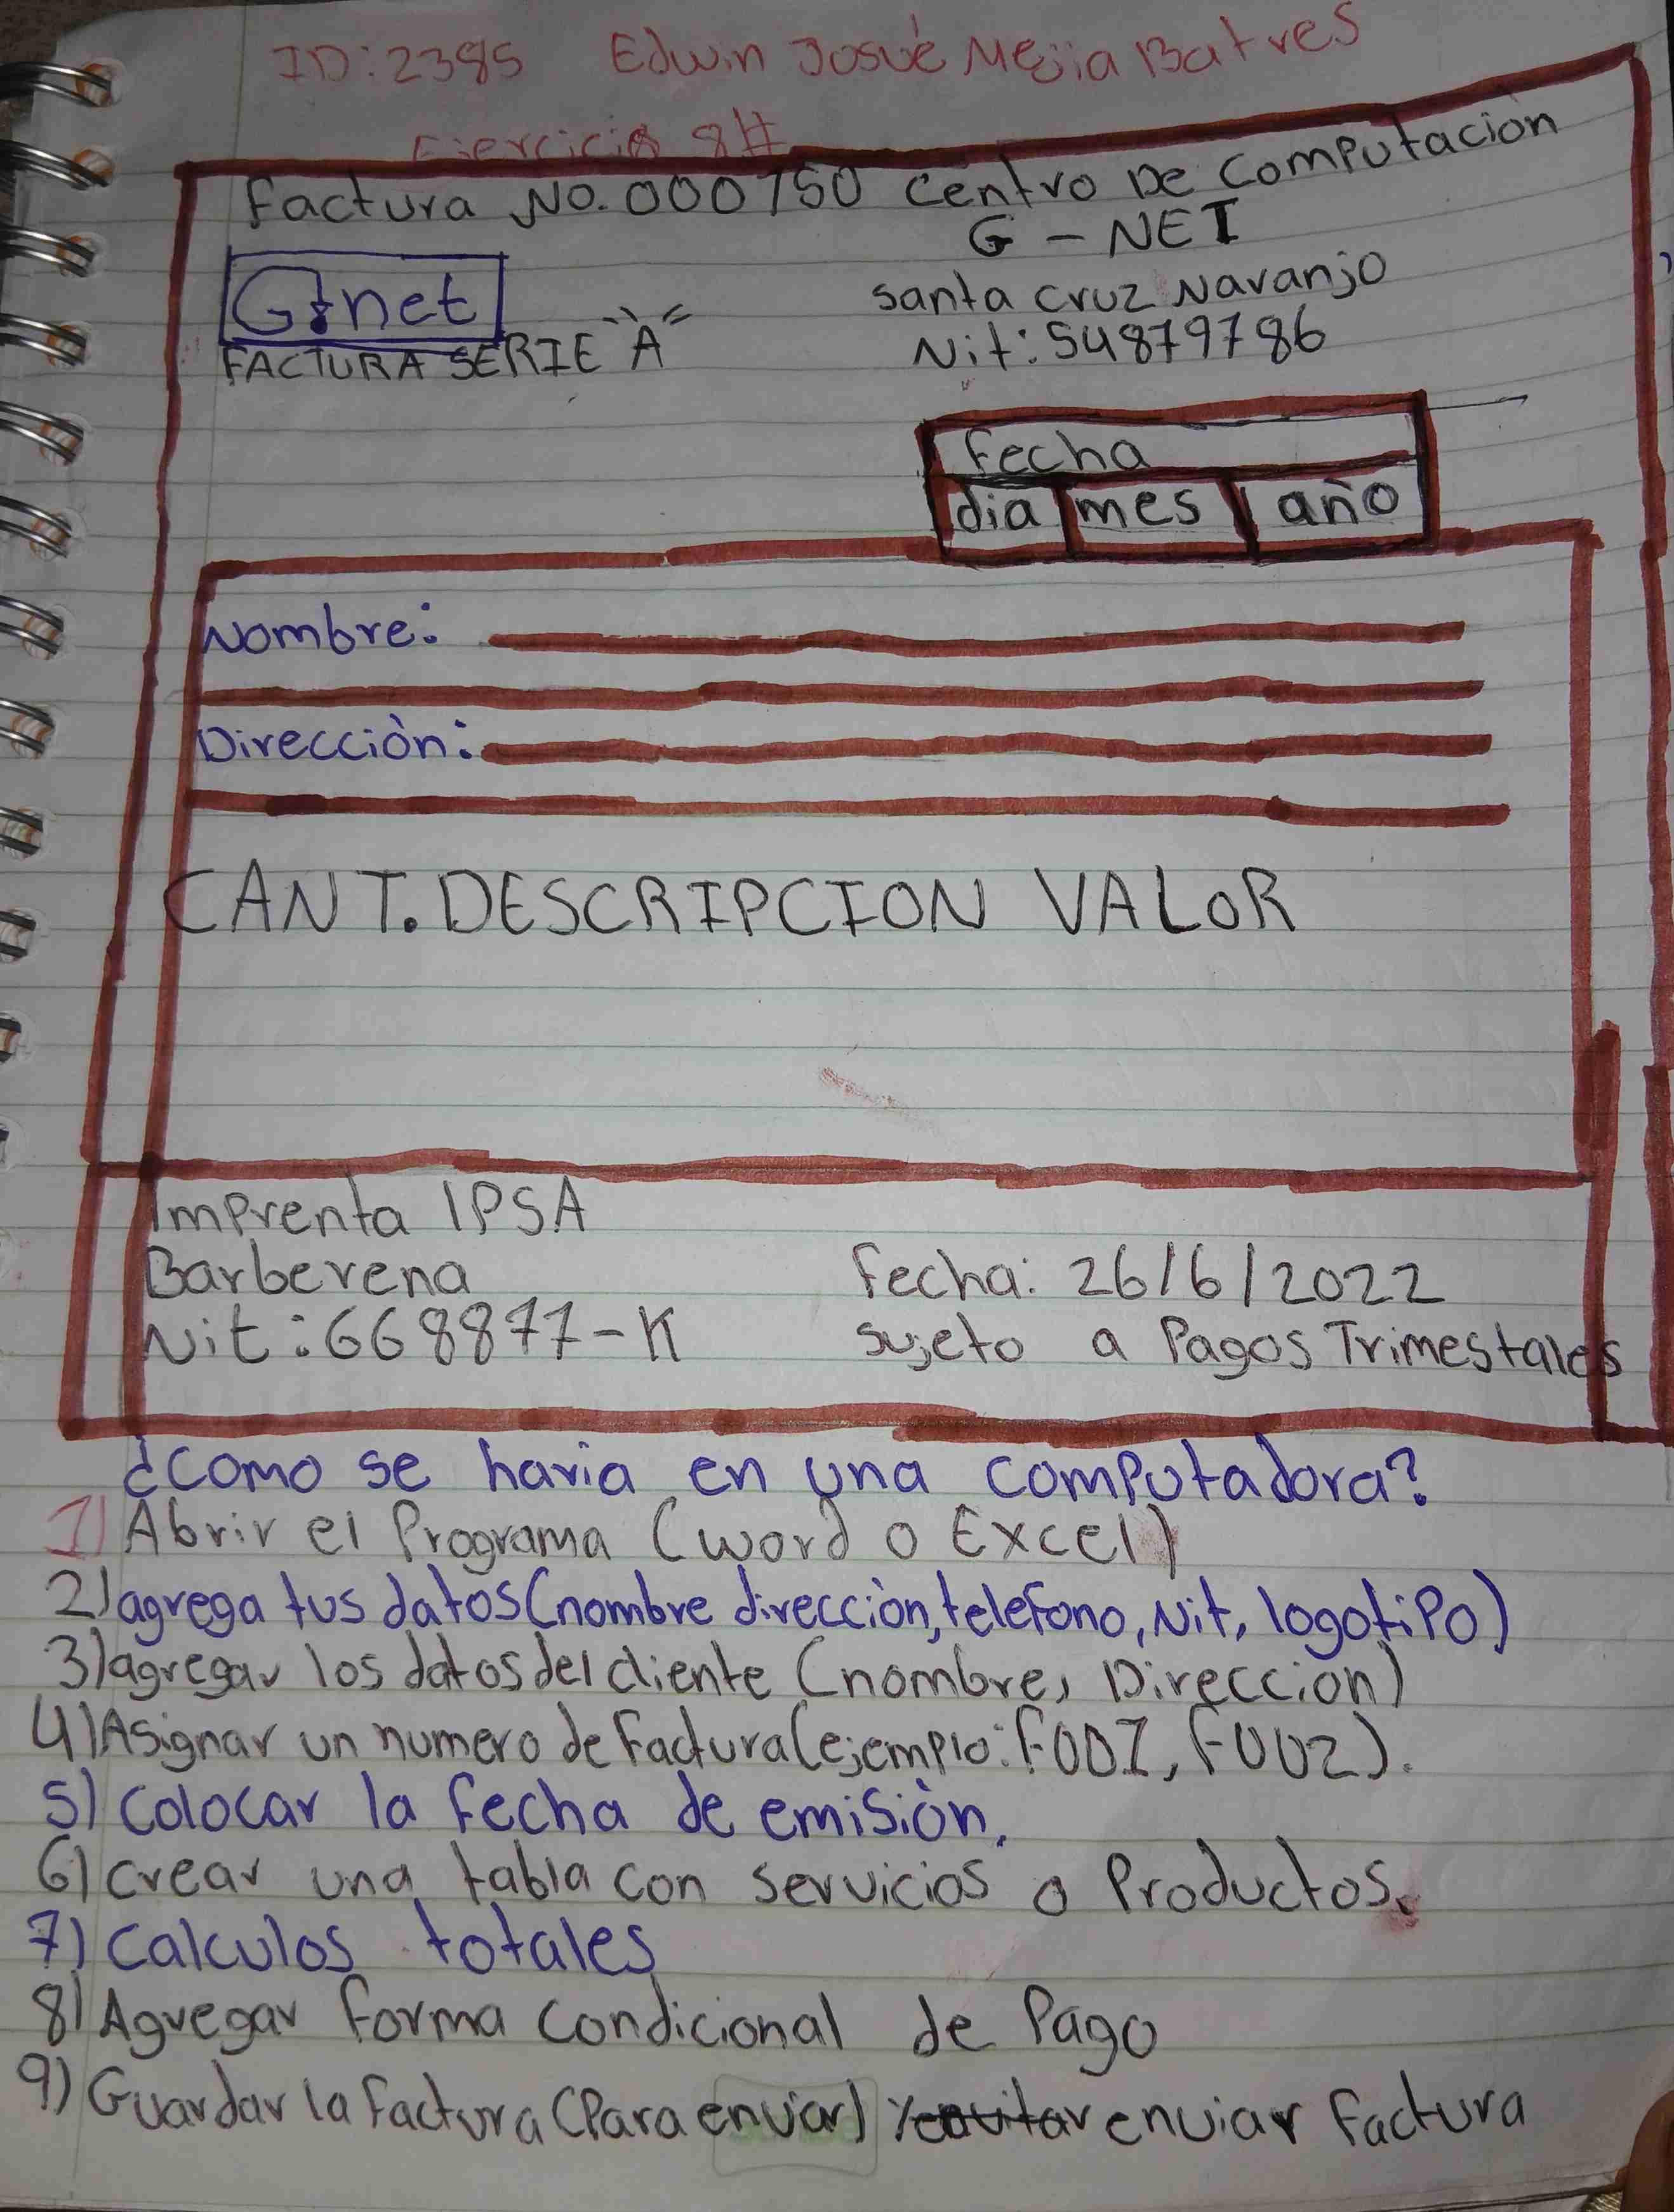 ID: 2385 Edwin Josué Mejia Batres
Ejercicio 8#
Factura No. 000150 Centro De Computación
G - NET
G net
Santa Cruz Naranjo
FACTURA SERIE "A"
Nit: 54879786
Fecha
dia mes año
Nombre:
Dirección:
CANT. DESCRIPCION VALOR
Imprenta IPSA
Barberena
Fecha: 26/6/2022
Nit: 668877-K
sujeto a Pagos Trimestales
¿como se haria en una computadora?
1) Abrir el Programa (word o Excel)
2) agrega tus datos (nombre dirección, telefono, Nit, logotipo)
3) agregar los datos del cliente (nombre, Direccion)
4) Asignar un numero de Factura (ejemplo: F001, F002).
5) Colocar la fecha de emisión.
6) crear una tabla con servicios o Productos.
7) Calculos totales
8) Agregar Forma Condicional de Pago
9) Guardar la Factura (Para enviar) y enviar Factura